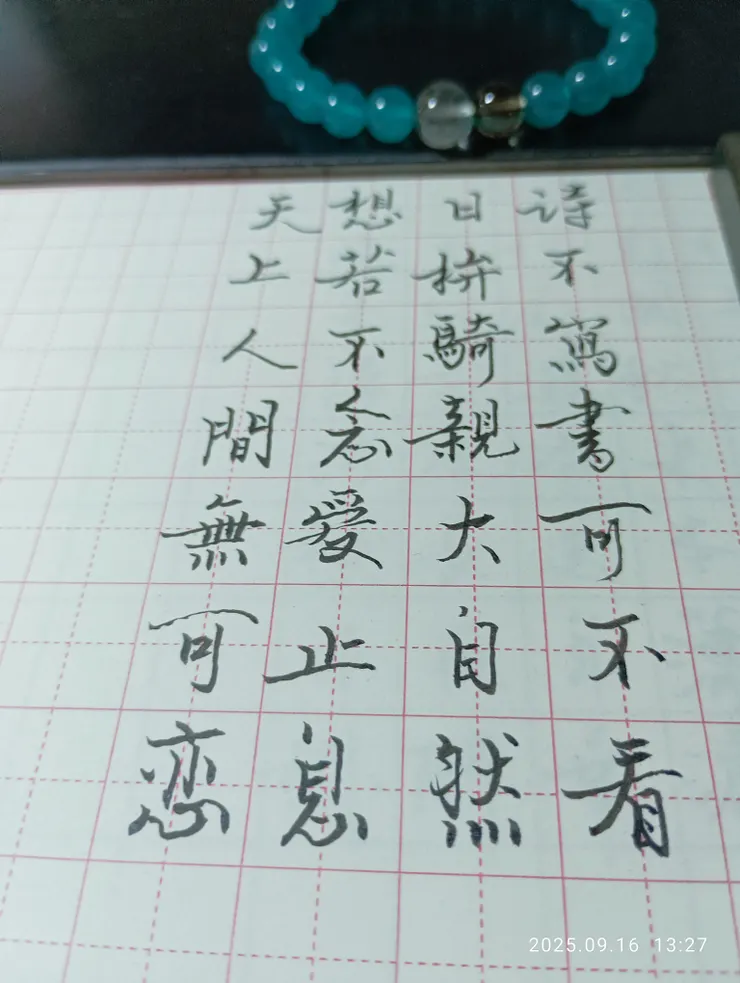 詩不寫書可不看
日拚騎親大自然
想若不念愛止息
天上人間無可恋
2025.09.16 13:27